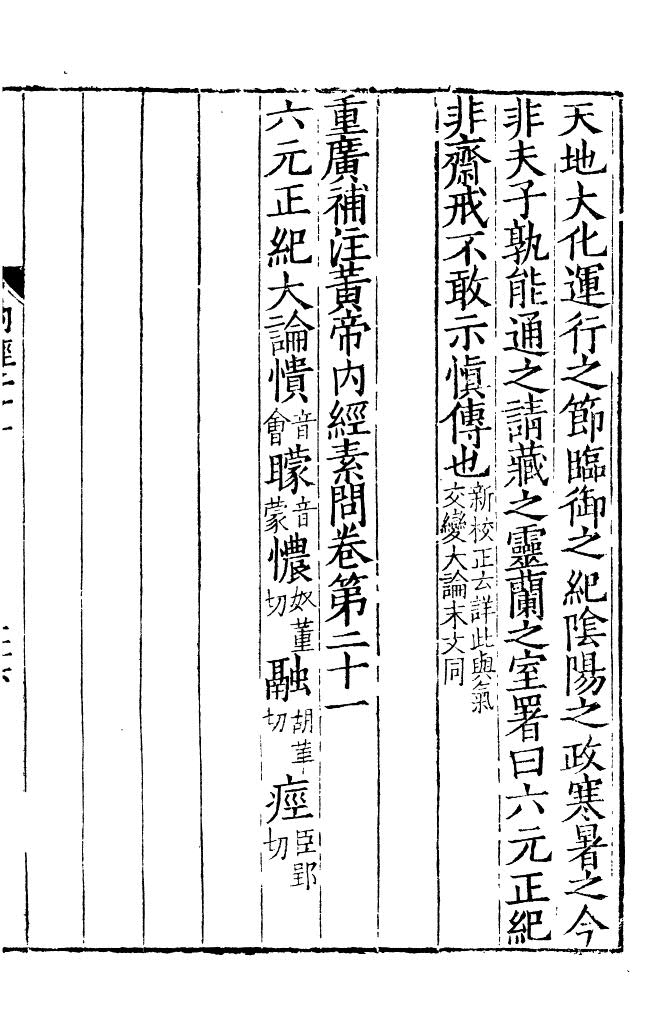 天地大化運行之節臨御之紀陰陽之政寒暑之今
非夫子孰能通之請藏之靈蘭之室署曰六元正紀
非齋戒不敢示慎傳也新校正云詳此與氣交變大論末文同
重廣補注黃帝内經素問卷第二十一
六元正紀大論憒音會矇音蒙憹奴董切融胡革切痙臣郢切